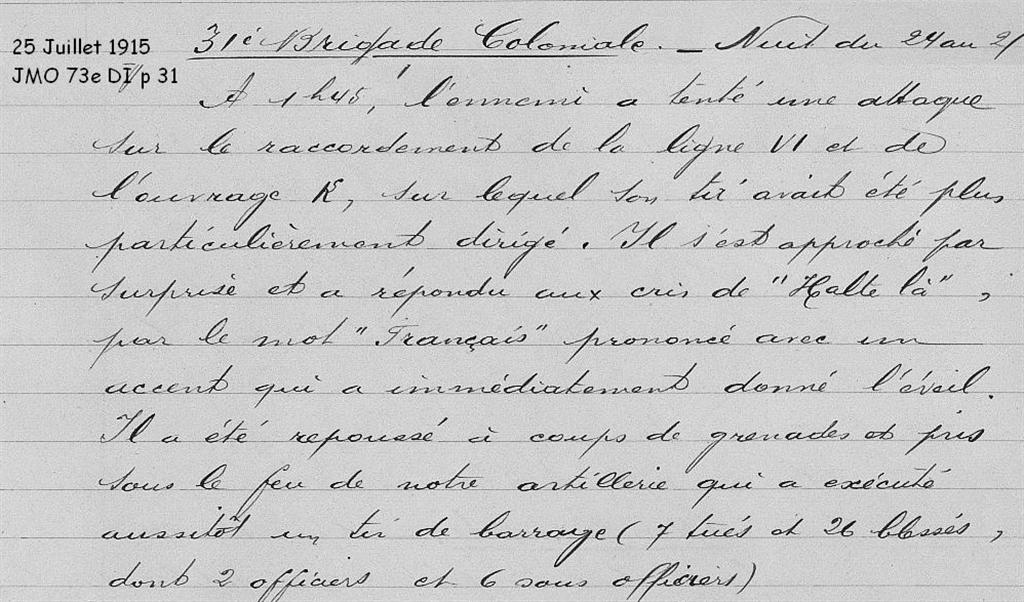 25 Juillet 1915
JMO 73e DI p 31
31e Brigade Coloniale. _ Nuit du 24 au 2
A 1h45, l'ennemi a tenté une attaque
sur le raccordement de la ligne VI et de
l'ouvrage K, sur lequel son tir avait été plus
particulièrement dirigé. Il s'est approché par
surprise et a répondu aux cris de "Halte là",
par le mot "Français" prononcé avec un
accent qui a immédiatement donné l'éveil.
Il a été repoussé à coups de grenades et pris
sous le feu de notre artillerie qui a exécuté
aussitôt un tir de barrage (7 tués et 26 blessés,
dont 2 officiers et 6 sous officiers)